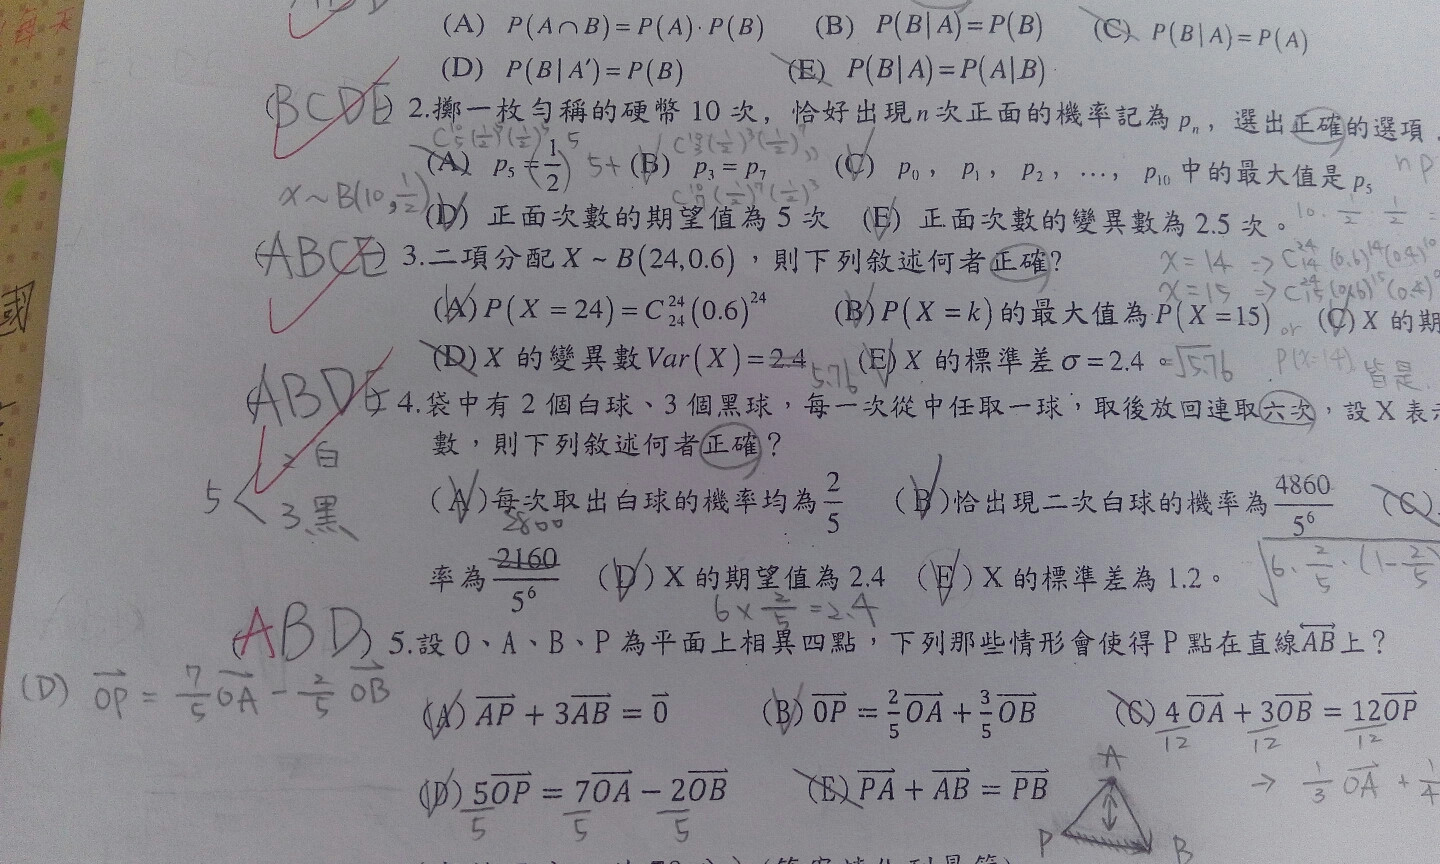 (A) P(A∩B)=P(A)·P(B) (B) P(B|A)=P(B) (C) P(B|A)=P(A)
(D) P(B|A′)=P(B) (E) P(B|A)=P(A|B)
(BCDE) 2.擲一枚勻稱的硬幣 10 次，恰好出現 n 次正面的機率記為 pₙ，選出正確的選項
(A) p₅=1/2 (B) p₃=p₇ (C) p₀，p₁，p₂，…，p₁₀ 中的最大值是 p₅
x~B(10,1/2)
(D) 正面次數的期望值為 5 次 (E) 正面次數的變異數為 2.5 次。
(ABCE) 3.二項分配 X ~ B(24,0.6)，則下列敘述何者正確?
x=14 => C²⁴₁₄(0.6)¹⁴(0.4)¹⁰
x=15 => C²⁴₁₅(0.6)¹⁵(0.4)
(A) P(X=24)=C²⁴₂₄(0.6)²⁴ (B) P(X=k)的最大值為 P(X=15) or (C) X 的期
(D) X 的變異數 Var(X)=2.4 5.76 (E) X 的標準差 σ=2.4。=√5.76 P(X=14) 皆是.
(ABDE) 4.袋中有 2 個白球、3 個黑球，每一次從中任取一球，取後放回連取六次，設 X 表示
數，則下列敘述何者正確？
5 < 2白 3黑
(A)每次取出白球的機率均為 2/5 (B)恰出現二次白球的機率為 4860/5⁶ (C)
2800
率為 2160/5⁶ (D) X 的期望值為 2.4 (E) X 的標準差為 1.2。 √6·2/5·(1-2/5)
6×2/5=2.4
(ABD) 5.設 O、A、B、P 為平面上相異四點，下列那些情形會使得 P 點在直線 AB 上？
(D) OP = 7/5 OA - 2/5 OB
(A) AP + 3AB = 0 (B) OP = 2/5 OA + 3/5 OB (C) 4OA + 3OB = 12OP
12 12 12
→ 1/3 OA + 1/4
(D) 5OP = 7OA − 2OB (E) PA + AB = PB
5 5 5
A
P B